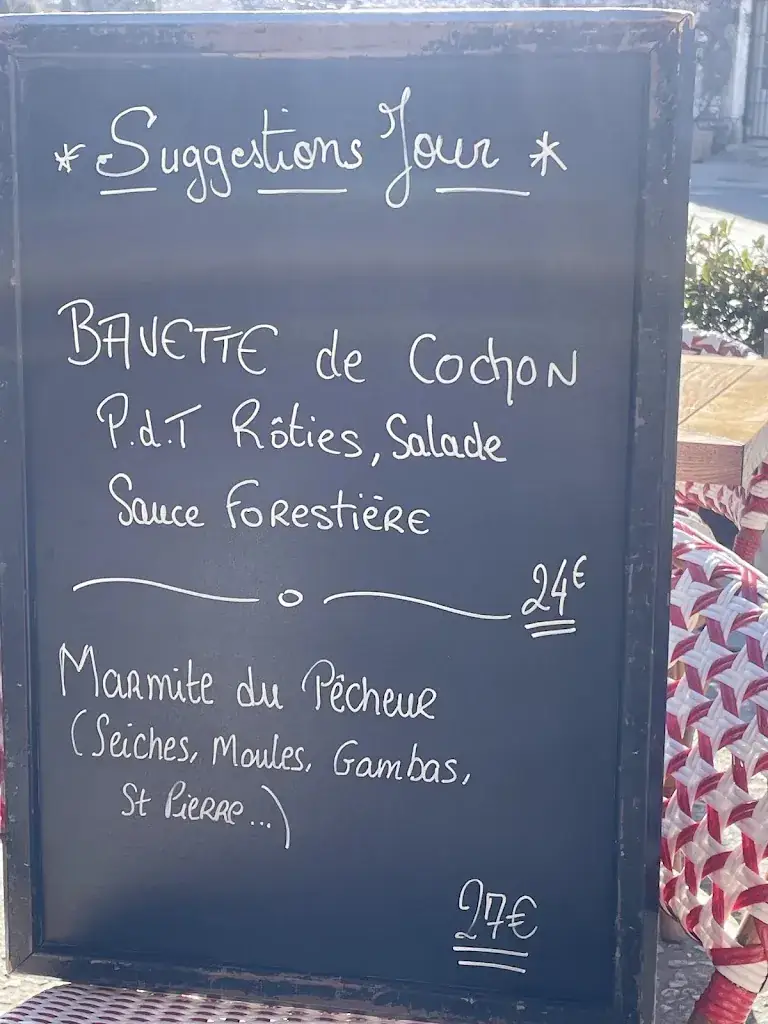 * Suggestions Jour *
BAVETTE de Cochon
P.d.T Rôties, Salade
Sauce Forestière
24€
Marmite du Pêcheur
(Seiches, Moules, Gambas,
St Pierre...)
27€